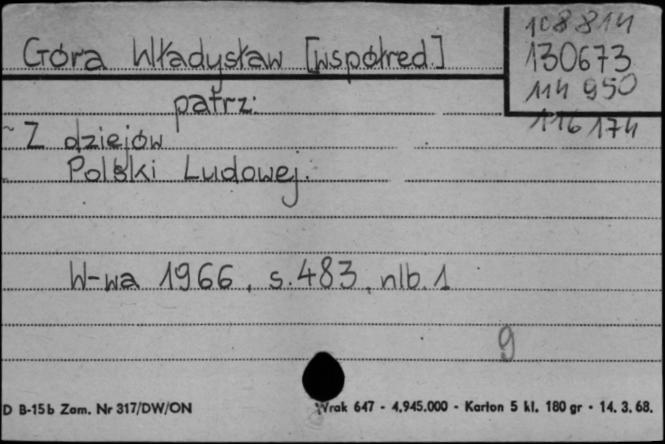 108814
Góra Władysław [współred.]
130673
114 950
patrz:
116 174
Z dziejów
Polski Ludowej.
W-wa 1966, s. 483, nlb. 1
9
D B-15b Zam. Nr 317/DW/ON
Wrak 647 - 4.945.000 - Karton 5 kl. 180 gr - 14. 3. 68.